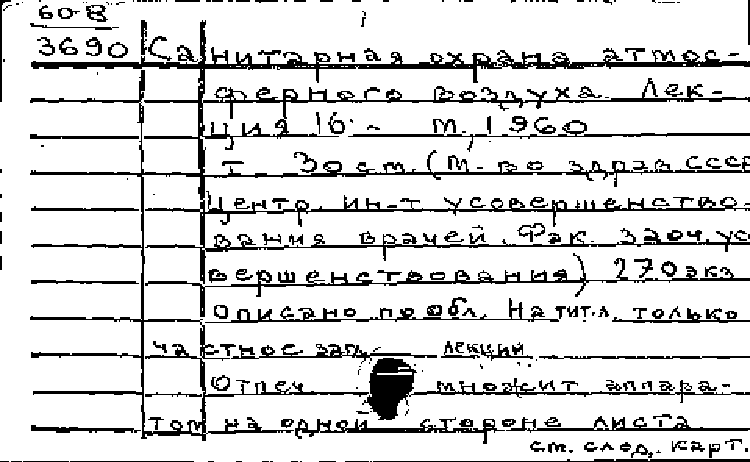 60-В
3690 Санитарная охрана атмос-
ферного воздуха. Лек-
ция 16. - М., 1960
I, 30 ст. (М-во здрав СССР
Центр. ин-т усовершенство-
вания врачей. Фак. заоч. ус
вершенствования) 270 экз
Описано по обл. На тит.л. только
частное загл. лекции
Отпеч. множит. аппара-
том на одной стороне листа
см. след. карт.